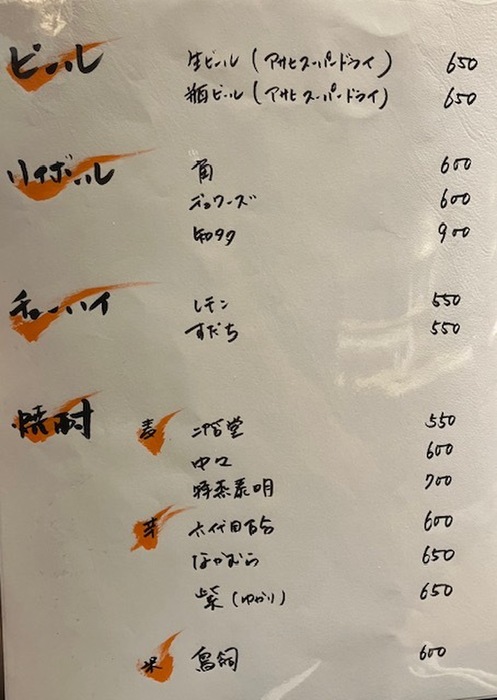 ビール
生ビール (アサヒスーパードライ) 650
瓶ビール (アサヒスーパードライ) 650
ハイボール
角 600
デュワーズ 600
知多 900
チューハイ
レモン 550
すだち 550
焼酎
麦 二階堂 550
中々 600
特蒸泰明 700
芋 六代目百合 600
なかむら 650
紫 (ゆかり) 650
米 鳥飼 600